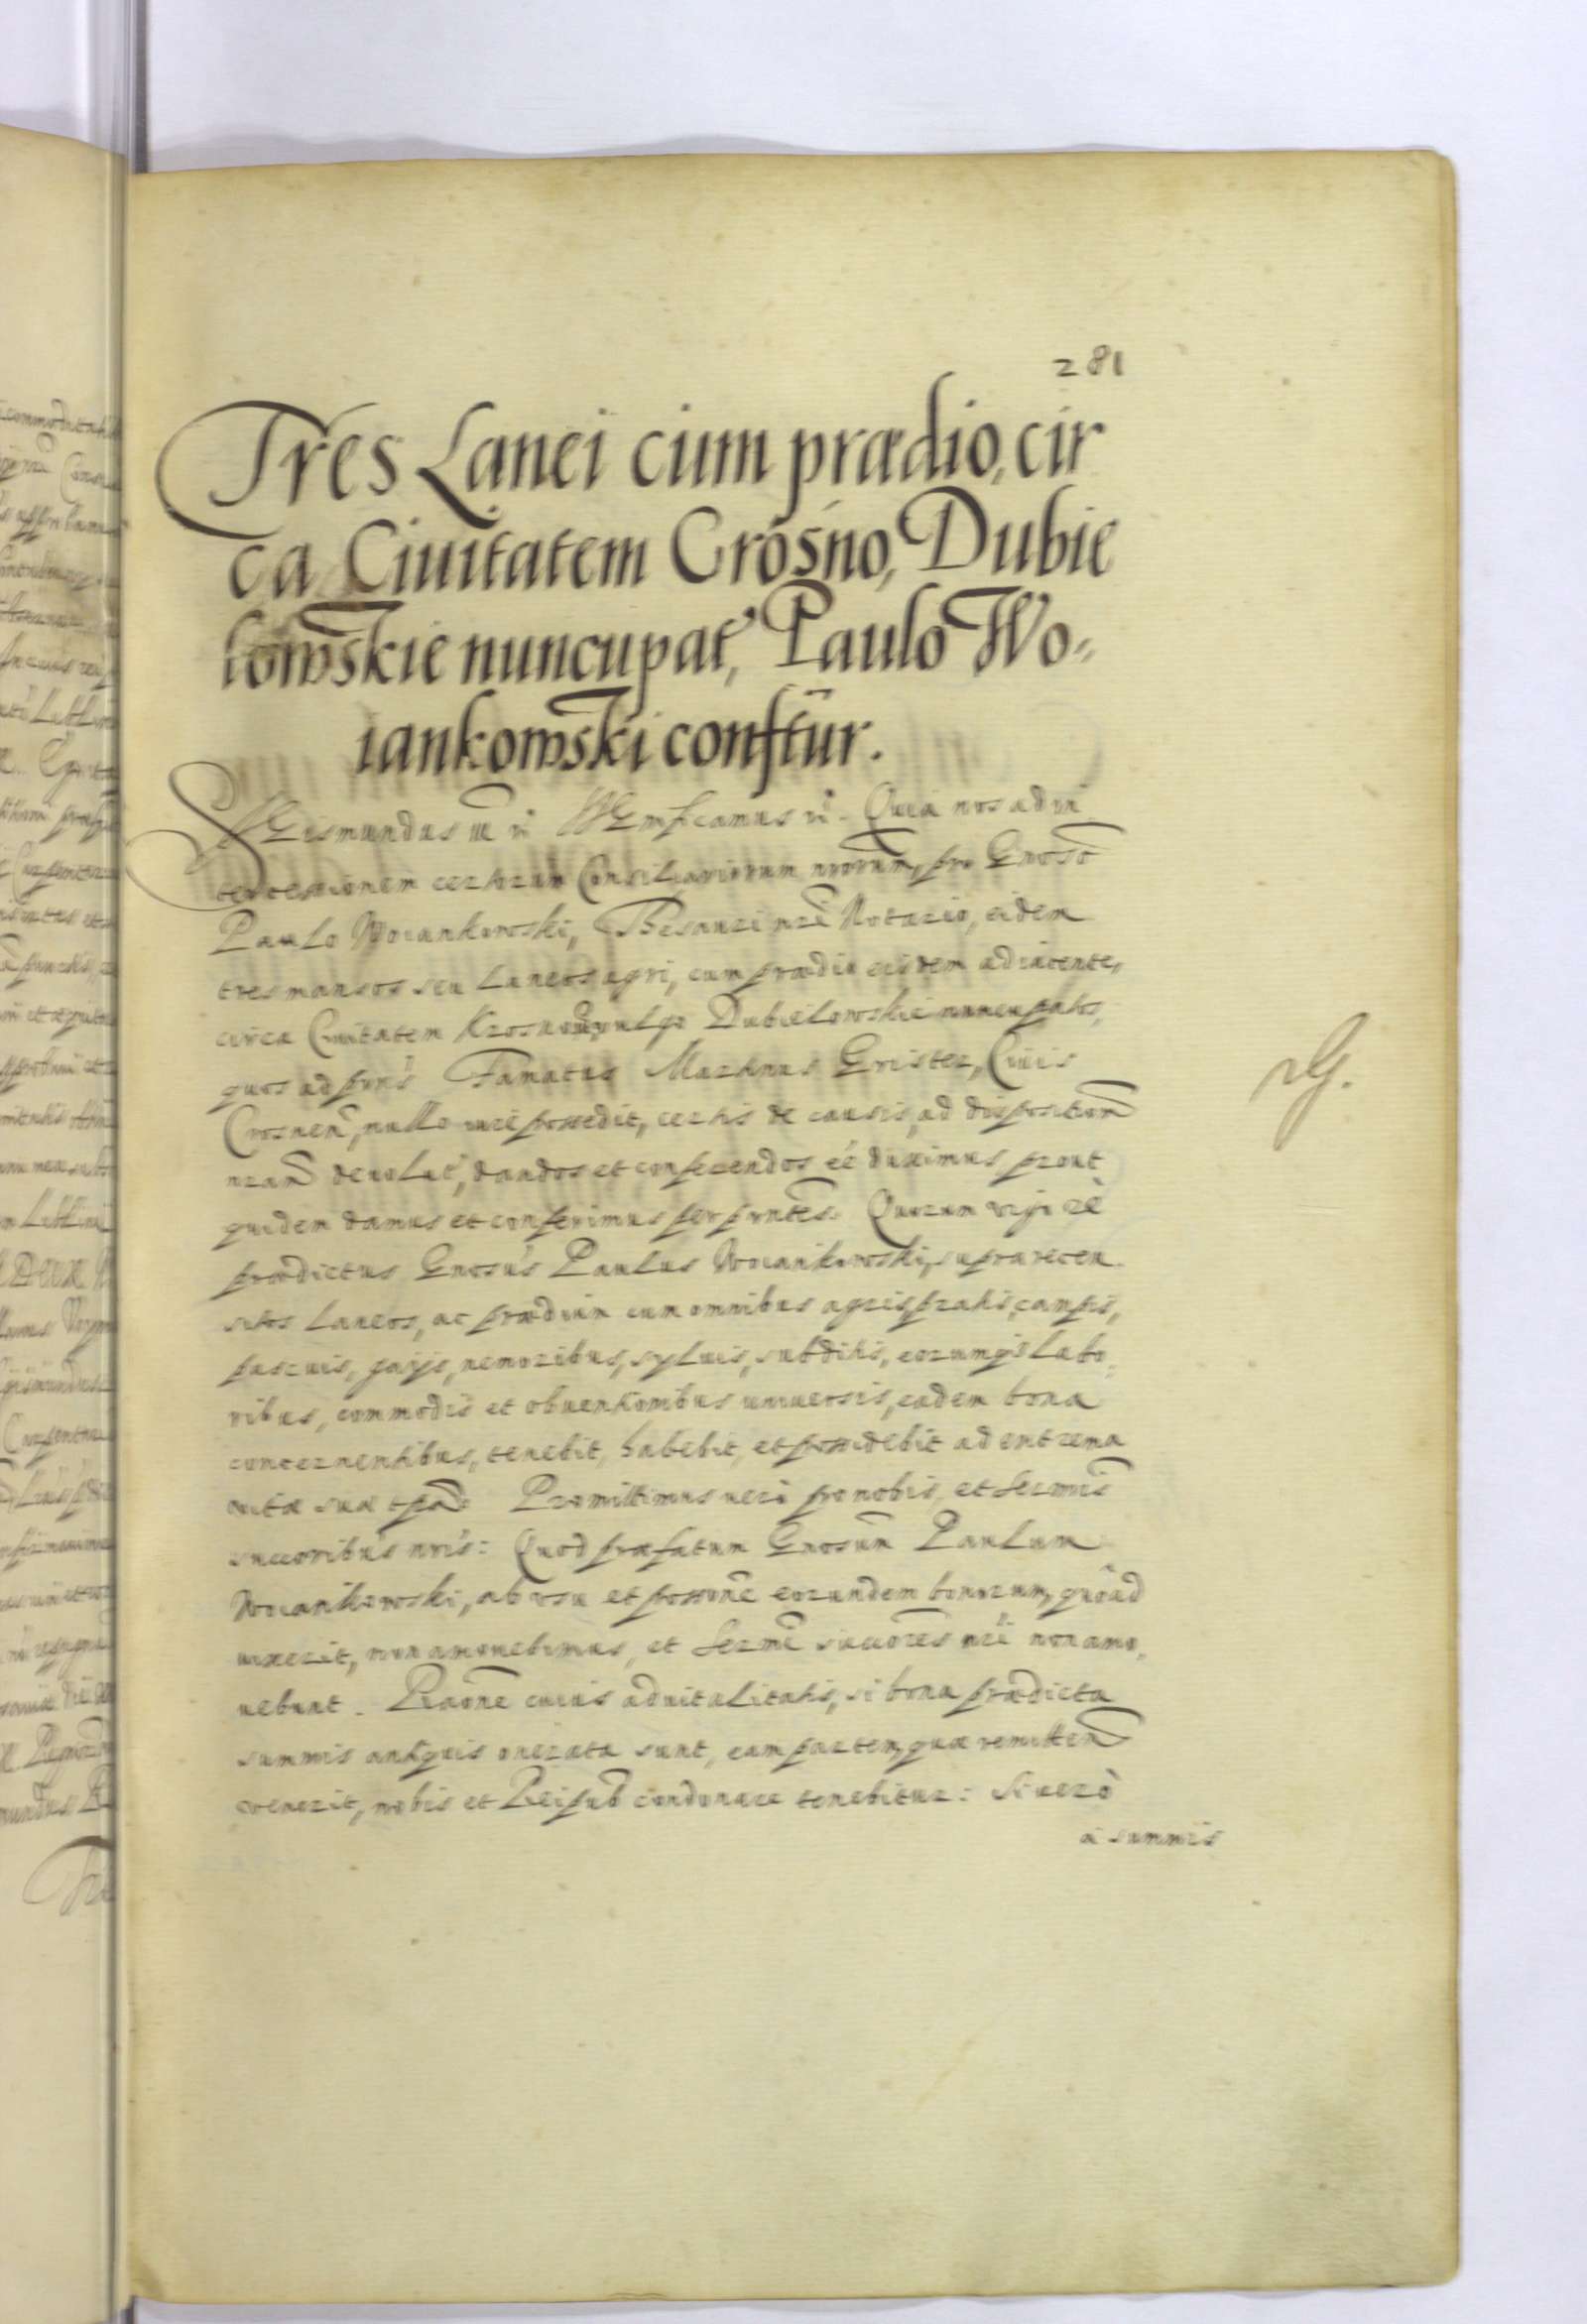 281
Tres Lanei cum prædio, cir
ca Ciuitatem Crosno, Dubie
lowskie nuncupat', Paulo Wo=
iankowski conftur.
Sigismundus III Significamus Quia nos ad in
tercessionem certorum Consiliariorum nrorum, pro Gnoso
Paulo Woiankowski, Thesauri nri Notario, eidem
tres mansos seu Laneos agri, cum prædio eisdem adiacente,
circa Ciuitatem vulgo Dubielowskie nuncupatos,
quos ad præns Famatus Martinus Ciuis
Crosnen, nullo iure possedit, certis de causis, ad dispositionem
nram deuolut', dandos et conferendos eé duximus prout
quidem damus et conferimus per præntes. Quorum
prædictus Gnosus Paulus Woiankowski, suprarecen
sitos Laneos, ac prædium cum omnibus agris, pratis, campis,
pascuis, gajis, nemoribus, syluis, subditis, eorumqs Labo
ribus, commodis et obuentionibus uniuersis, eadem bona
concernentibus, tenebit, habebit, et possidebit ad extrema
vitæ suæ tpa. Promittimus vero pro nobis, et Sermis
succoribus nris: Quod præfatum Gnosum Paulum
Woiankowski, ab usu et possone eorundem bonorum, quoad
vixerit, non amouebimus, et Sermi succores nri non amo
uebunt. Raone cuius aduitalitatis, si bona prædicta
summis antiquis onerata sunt, eam partem, quæ remitten
venerit, nobis et Reipub condonare tenebitur: Si vero
a summis